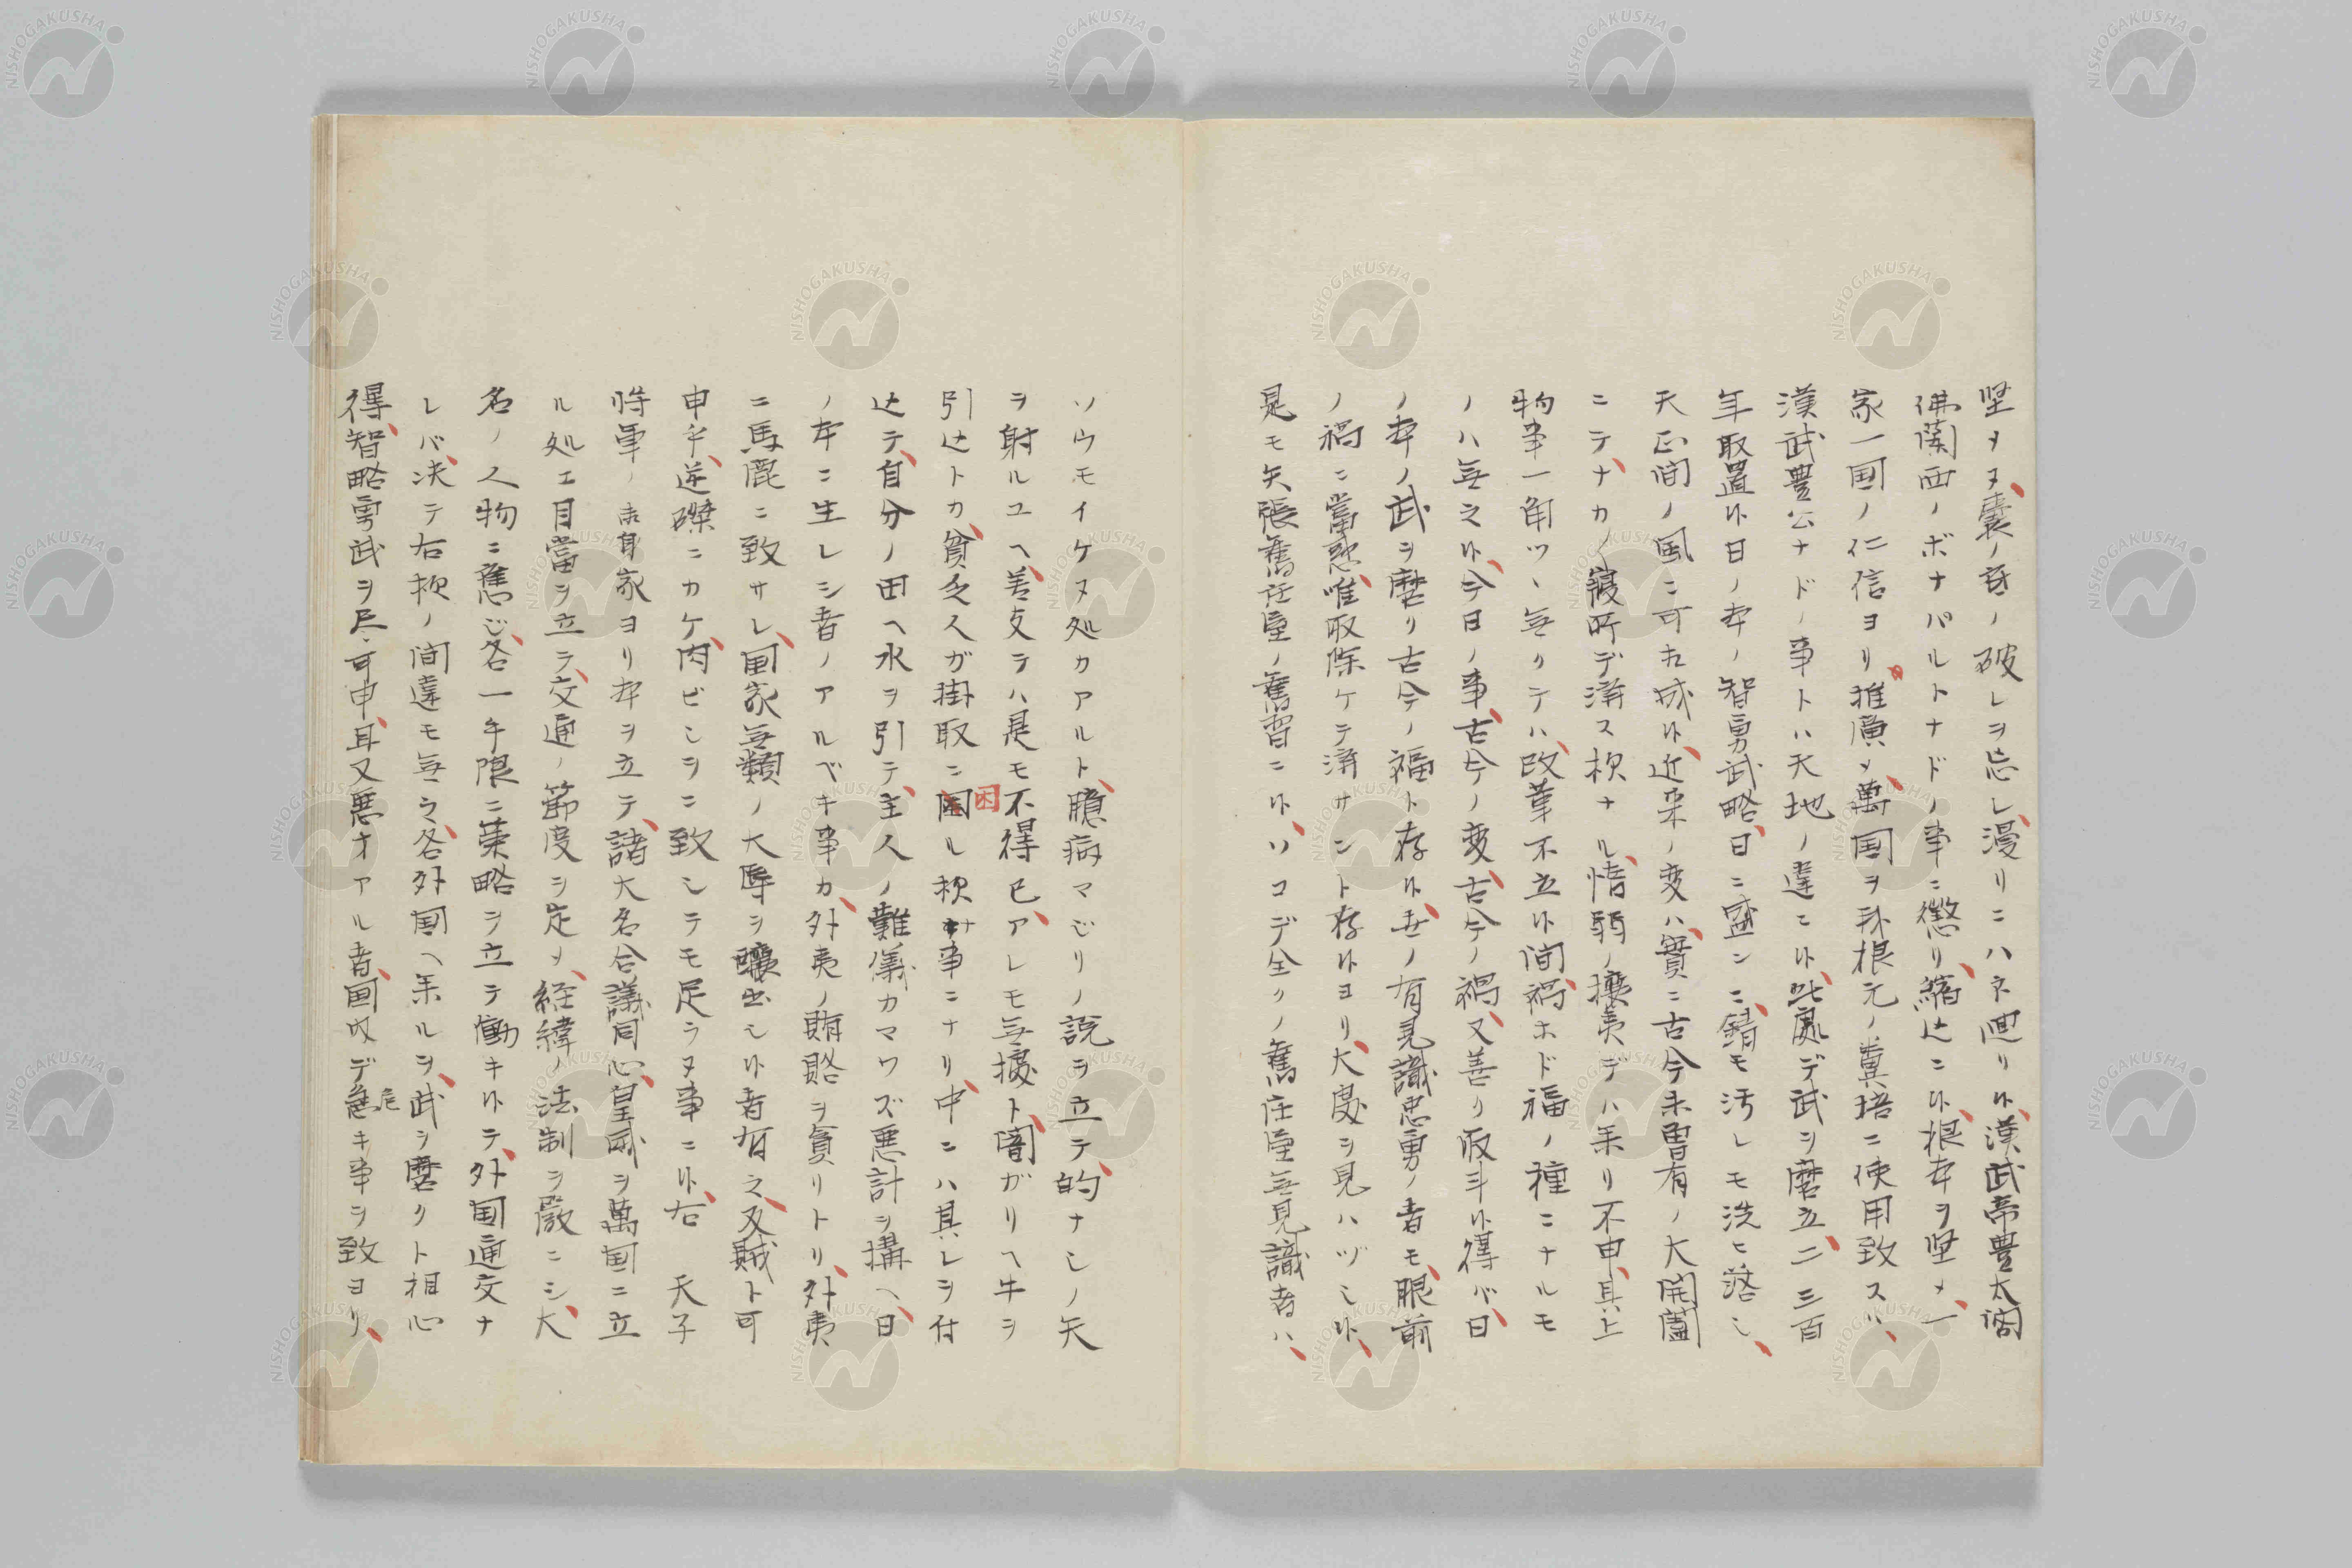 堅メヌ、嚢ノ底ノ破レヲ忘レ、漫リニハネ廻リ候、漢武帝豊太閤
佛蘭西ノボナパルトナドノ事ニ懲リ、縮辷ニ候、根本ヲ堅メ、一
家一国ノ仁信ヨリ推廣メ、萬国ヲ我根元ノ糞培ニ使用致スハ、
漢武豊公ナドノ事トハ天地ノ違ニ候、此處デ武ヲ磨立、二三百
年取置候日ノ本ノ智勇武略、日ニ盛ンニ、錆モ汚レモ洗ヒ落シ、
天正間ノ風ニ可相成候、近来ノ変ハ、實ニ古今未曽有ノ大開闢
ニテ、ナカ〳〵寝所デ済ス積ナル、惰弱ノ攘夷デハ参リ不申、其上
物事一角ツヽ無クテハ、改革不立候間、禍ホド福ノ種ニナルモ
ノハ無之候、今日ノ事、古今ノ変、古今ノ禍、又善ク取斗候得バ、日
ノ本ノ武ヲ磨リ古今ノ福ト存候、世ノ有見識忠勇ノ者モ、眼前
ノ禍ニ當惑、唯取除ケテ済サント存候ヨリ、大処ヲ見ハヅシ候、
是モ矢張舊荘屋ノ舊習ニ候、ソコデ全クノ舊庄屋無見識者ハ、
ソウモイケヌ処カアルト、臆病マジリノ説ヲ立テ、的ナシノ矢
ヲ射ルユヘ、善支テハ是モ不得已、アレモ無據ト、闇ガリヘ牛ヲ
引辷トカ、貧乏人ガ掛取ニ困ル積ノ事ニナリ、中ニハ其レヲ付
辷テ、自分ノ田ヘ水ヲ引テ、主人ノ難儀カマワズ悪計ヲ搆ヘ、日
ノ本ニ生レシ者ノアルベキ事カ、外夷ノ賄賂ヲ貪リトリ、外夷
ニ馬鹿ニ致サレ、国家無類ノ大辱ヲ醸出シ候者有之、又賊ト可
申乎、逆磔ニカケ、肉ビシヲニ致シテモ足ラヌ事ニ候、右 天子
将軍ノ御身家ヨリ本ヲ立テ、諸大名合議同心、皇国ヲ萬国ニ立
ル処エ目當ヲ立テ、交通ノ節度ヲ定メ、経緯ノ法制ヲ嚴ニシ、大
名ノ人物ニ應ジ、各一手限ニ策略ヲ立テ働キ候テ、外国通交ナ
レバ、决テ右積ノ間違モ無ラ、各外国ヘ参ルヲ、武ヲ磨クト相心
得、智略勇武ヲ尽可申、耳又悪才アル者、国政デ危キ事ヲ致ヨリ、
困